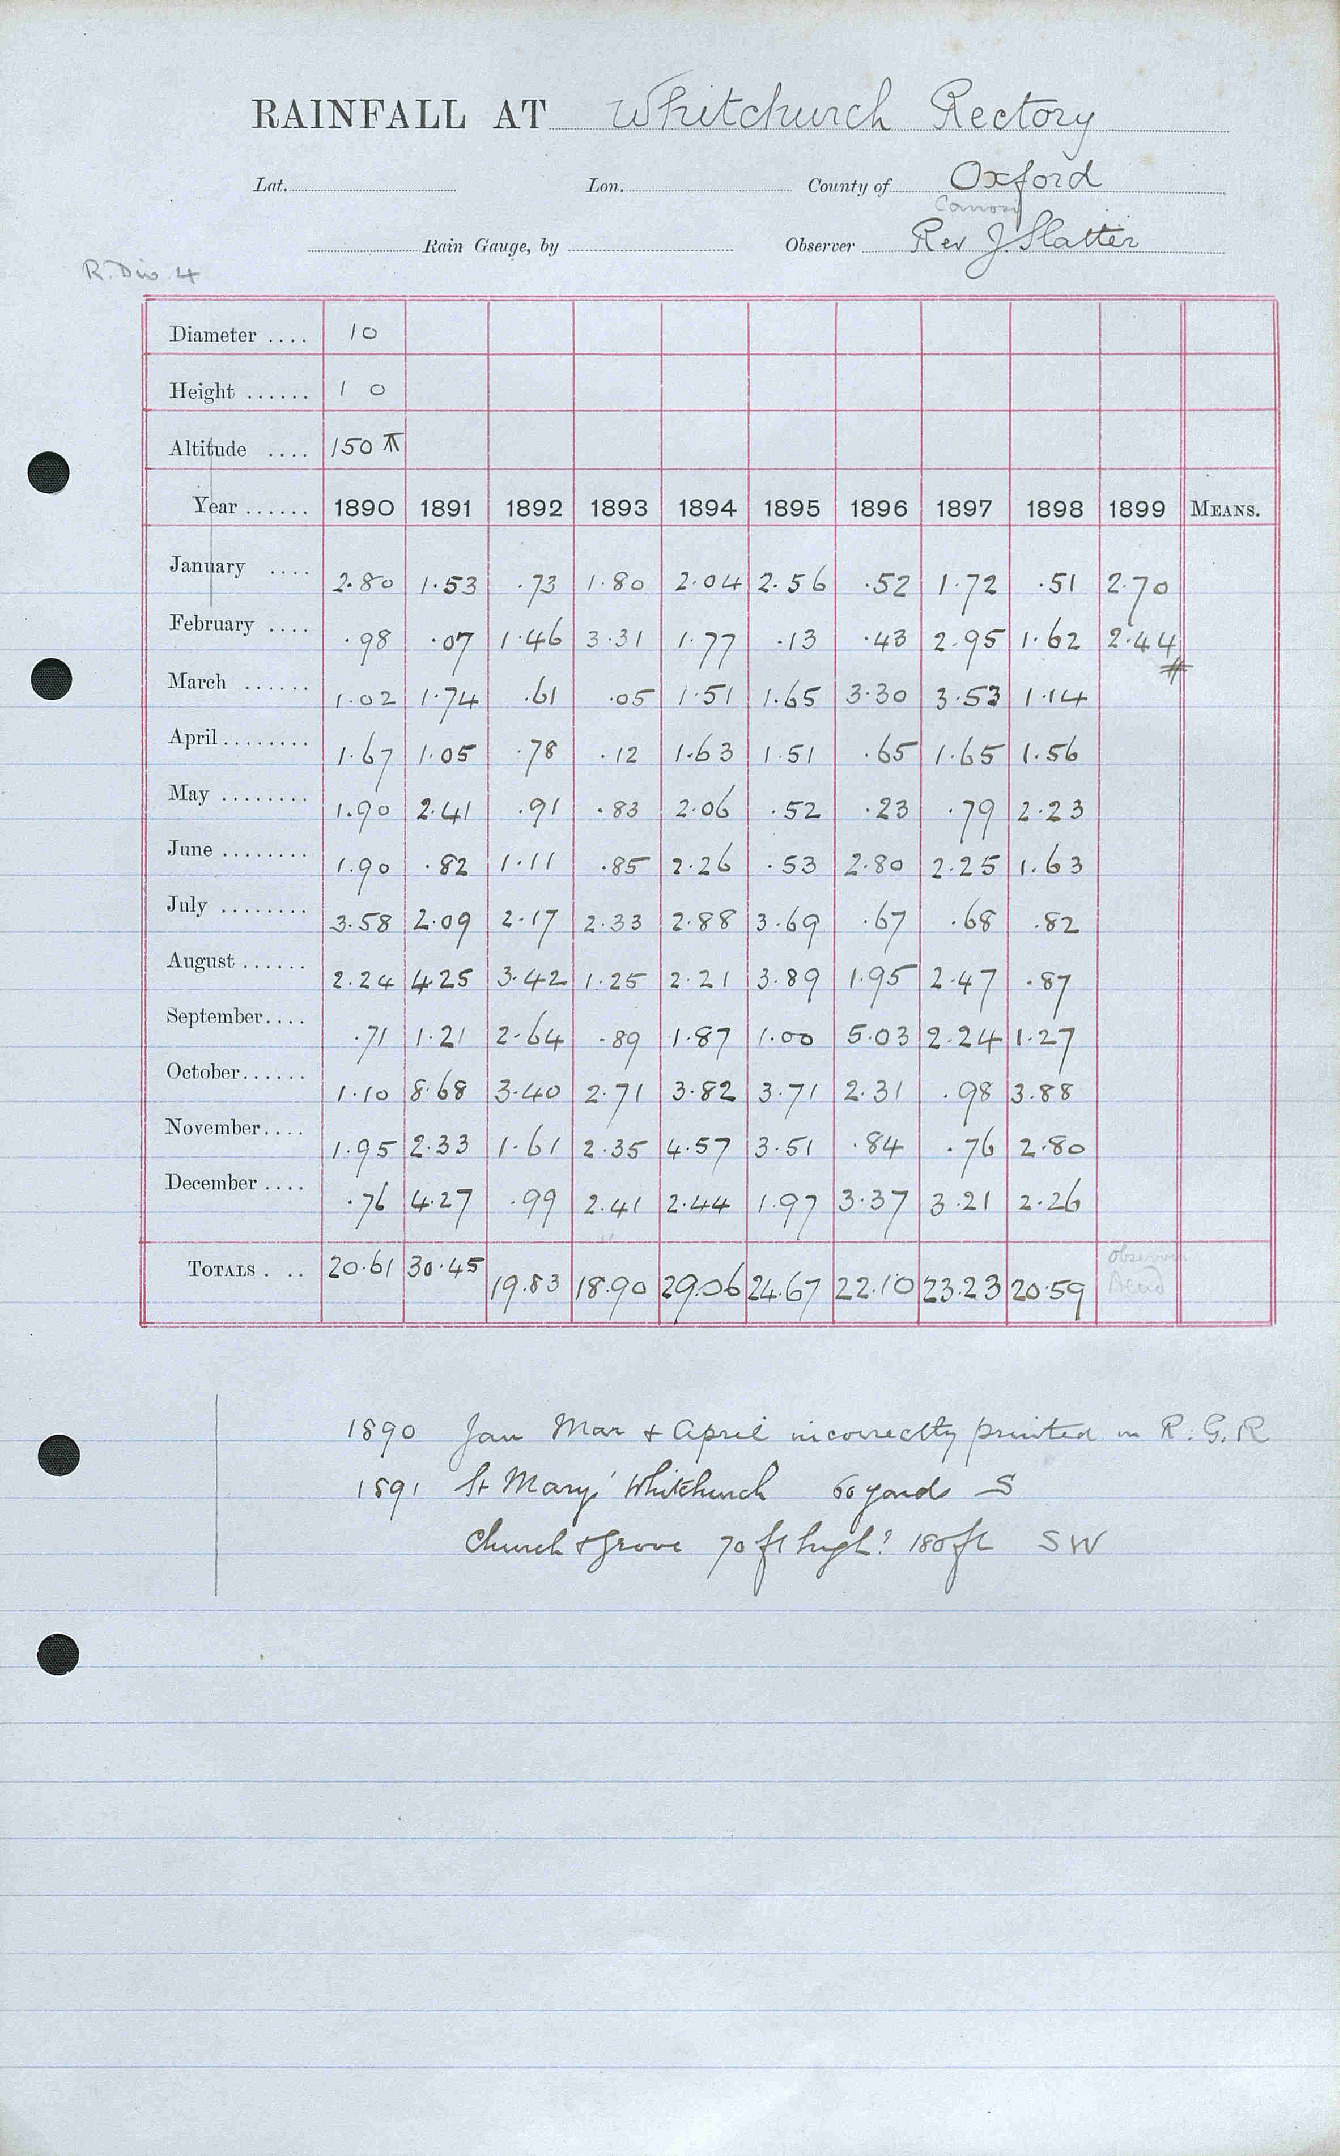 RAINFALL AT Whitchurch Rectory
Lat. Lon. County of Oxford
Canon
Rain Gauge, by Observer Rev J. Slatter
R. Div 4
Diameter .... 10
Height ...... 1 0
Altitude .... 150 ft
Year ...... 1890 1891 1892 1893 1894 1895 1896 1897 1898 1899 MEANS.
January .... 2.80 1.53 .73 1.80 2.04 2.56 .52 1.72 .51 2.70
February .... .98 .07 1.46 3.31 1.77 .13 .43 2.95 1.62 2.44 #
March ...... 1.02 1.74 .61 .05 1.51 1.65 3.30 3.53 1.14
April ........ 1.67 1.05 .78 .12 1.63 1.51 .65 1.65 1.56
May ........ 1.90 2.41 .91 .83 2.06 .52 .23 .79 2.23
June ........ 1.90 .82 1.11 .85 2.26 .53 2.80 2.25 1.63
July ........ 3.58 2.09 2.17 2.33 2.88 3.69 .67 .68 .82
August ...... 2.24 4.25 3.42 1.25 2.21 3.89 1.95 2.47 .87
September.... .71 1.21 2.64 .89 1.87 1.00 5.03 2.24 1.27
October...... 1.10 8.68 3.40 2.71 3.82 3.71 2.31 .98 3.88
November.... 1.95 2.33 1.61 2.35 4.57 3.51 .84 .76 2.80
December .... .76 4.27 .99 2.41 2.44 1.97 3.37 3.21 2.26
TOTALS . .. 20.61 30.45 19.83 18.90 29.06 24.67 22.10 23.23 20.59 observer
Dead
1890 Jan Mar + April incorrectly printed in R. G. R
1891 St Mary' Whitchurch 60 yards S
Church + grove 70 ft high? 180 ft SW